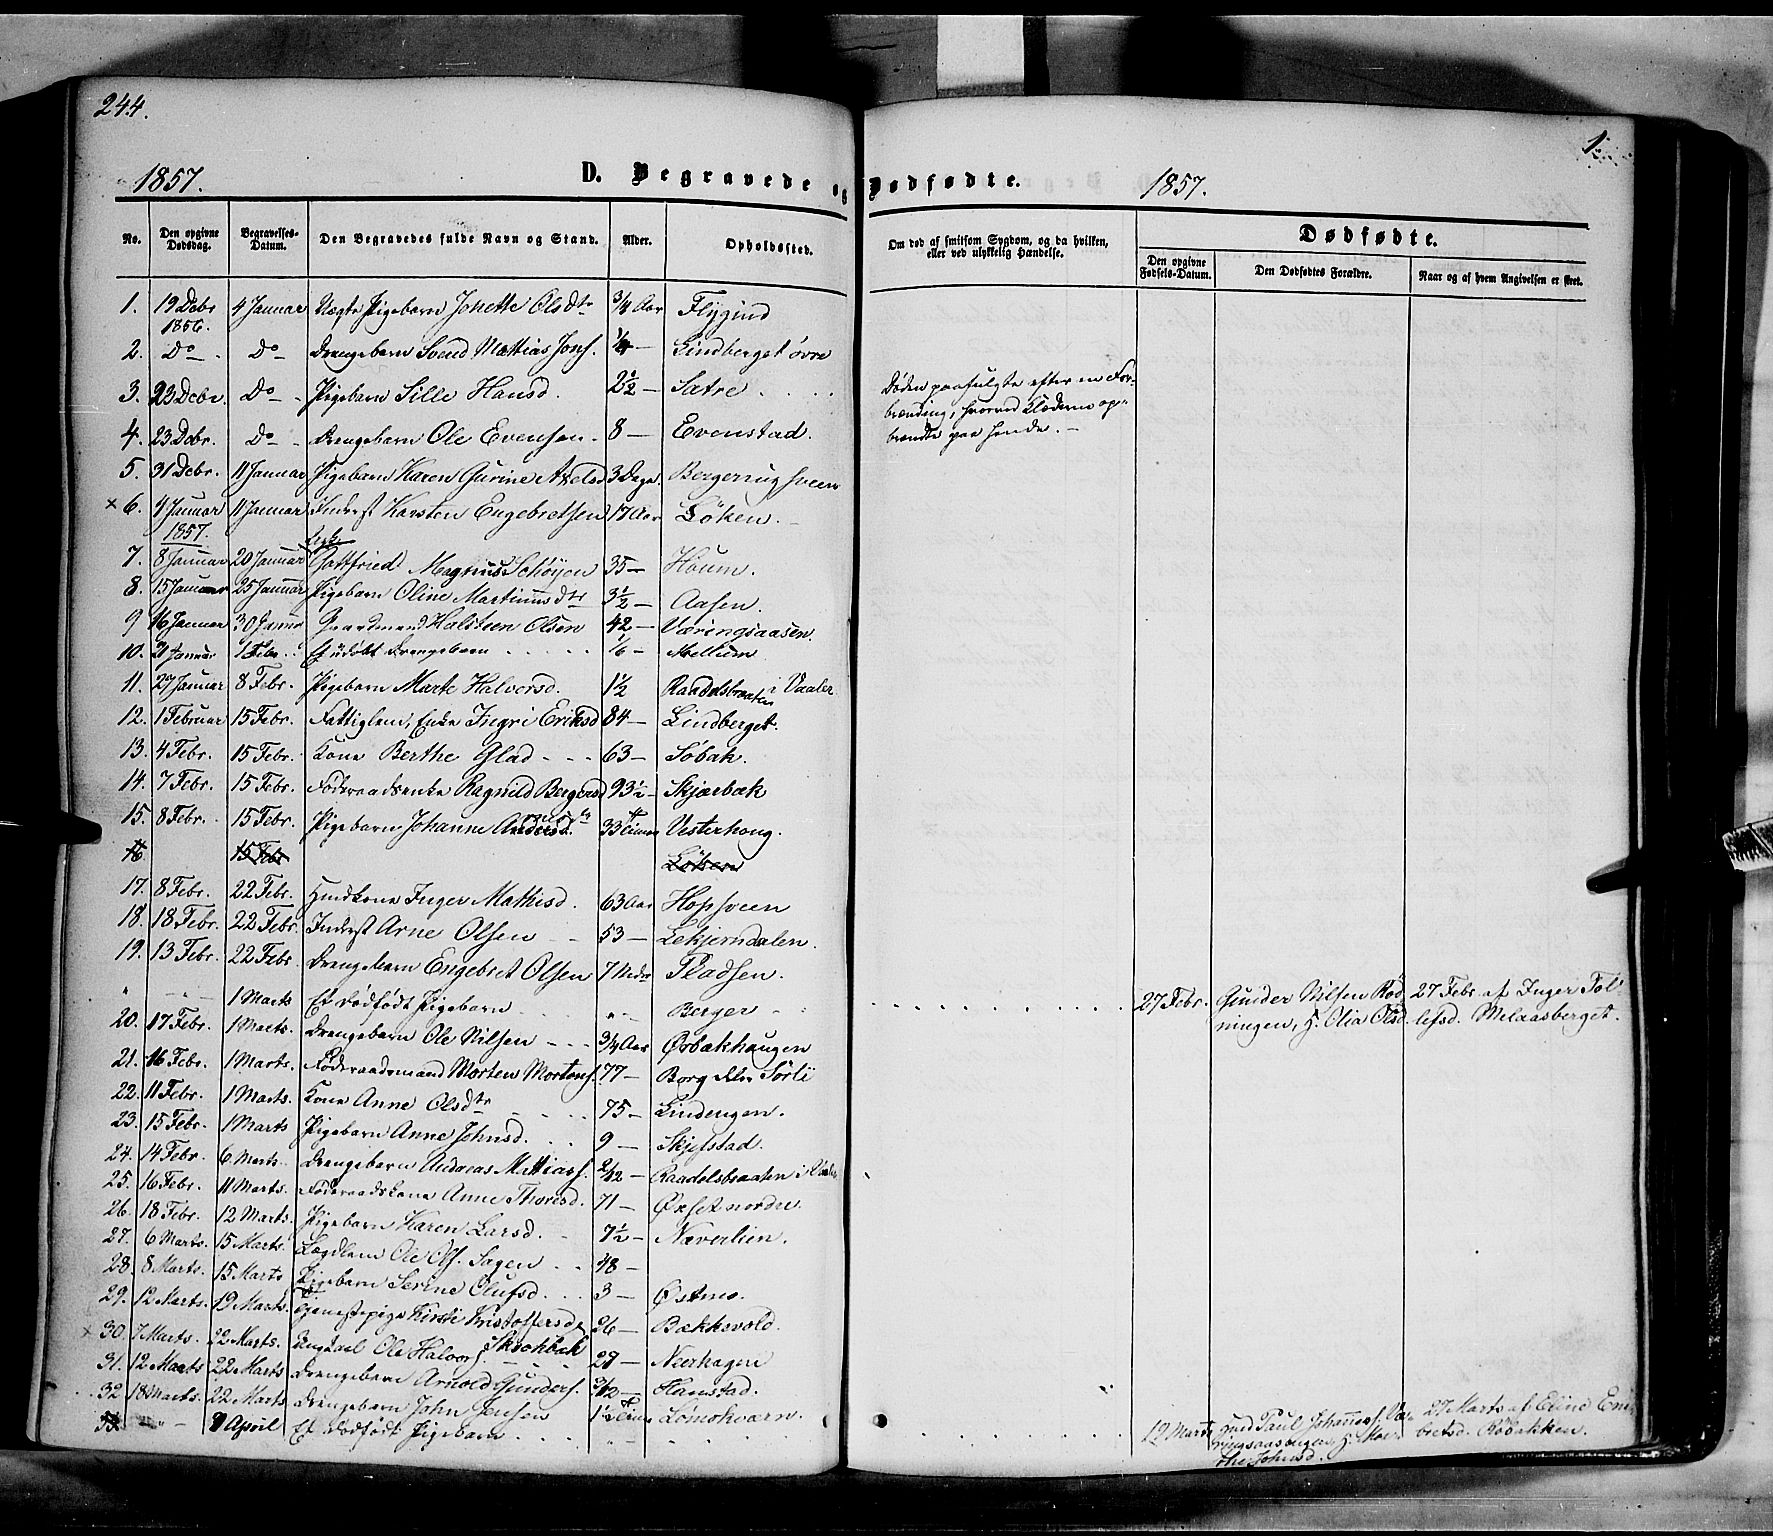 244.
1.
1857. D. Begravede og Dødfødte. 1857.
No. Den opgivne Dødsdag. Begravelses-Datum. Den Begravedes fulde Navn og Stand. Alder. Opholdssted. Om død af smitsom Sygdom, og da hvilken, eller ved ulykkelig Hændelse. Dødfødte.
Den opgivne Fødsels-Datum. Den Dødfødtes Forældre. Naar og af hvem Angivelsen er skeet.
1. 19 Debr 1856. 4 Januar Uægte Pigebarn Jonette Olsdtr 3/4 Aar Flygind
2. Do - Do - Drengebarn Svend Mattias Jons. 1/4 - Lindberget øvre
3. 23 Debr. Do - Pigebarn Sille Hansd. 2 1/2 - Sætre Døden paafulgte efter en For-
brænding, hvorved Klæderne op-
brændte paa hende. -
4. 23 Debr. Do - Drengebarn Ole Evensen. 8 - Evenstad.
5. 31 Debr. 11 Januar Pigebarn Karen Gurine Axelsd 3 Dage. Bergerrugsveen
× 6. 4 Januar 1857. 11 Januar Inderst Karsten Engebretsen 17 Aar Löken. -
7. 8 Januar 20 Januar Gottfried Magnus Schöyen 35 - Houm.
8. 15 Januar 25 Januar Pigebarn Oline Martinusdtr 3 1/2 - Aasen.
9 16 Januar 30 Janr Gaardmand Halsteen Olsen 42 - Væringsaasen.
10. 21 Januar 1 Febr. Et udöbt Drengebarn 1/6 - Mellum
11. 27 Januar 8 Febr. Pigebarn Marte Halversd. 1 1/2 Raadelsbraaten i Vaaler
12. 1 Februar 15 Febr. Fattiglem, Enke Ingri Eriksd 84 - Lindberget.
13. 4 Febr. 15 Febr. Kone Berthe Glad - - - 63 - Söbak.
14. 7 Febr. 15 Febr. Föderaadsenke Ragnild Bergersd 93 1/2 - Skjærbæk
15. 8 Febr. 15 Febr. Pigebarn Johanne Andersd. 33 Timer Vesterhoug.
16 15 Febr Löken
17. 8 Febr. 22 Febr. Huuskone Inger Mathisd. 63 Aar Hopsveen
18. 18 Febr. 22 Febr. Inderst Arne Olsen - - 53 - Lekjerndalen.
19. 13 Febr. 22 Febr. Drengebarn Engebret Olsen 7 Pladsen.
" - " - 1 Marts Et dödfödt Pigebarn " - Berger - 27 Febr. Gunder Nilsen Röd- 27 Febr. af Inger Tol-
ningen, H. Olia Olsd. lefsd. Melaasberget.
20. 17 Febr. 1 Marts. Drengebarn Ole Nilsen - - - 3/4 Aar Ørbækhaugen
21. 16 Febr. 1 Marts. Föderaadsmand Morten Mortens. 77 - Borg eller Sörli
22. 11 Febr. 1 Marts. Kone Anne Olsdtr 75 - Lindengen.
23. 15 Febr. 1 Marts Pigebarn Anne Johnsd. 9 - Skjefstad.
24. 14 Febr. 6 Marts. Drengebarn Andreas Mattias. 2/12 - Raadelsbraaten i Vaaler
25. 16 Febr. 11 Marts. Föderaadskone Anne Thoresd. 71 - Øxset nordre.
26. 18 Febr. 12 Marts. Pigebarn Karen Larsd. 7 1/2 - Næverlien.
27. 6 Marts. 15 Marts. Lægdlem Ole Ols. Sagen 48 -
28. 8 Marts. 15 Marts Pigebarn Serine Olufsd. 3 - Østmo.
29. 12 Marts. 19 Marts. Tjenestepige Kirsti Kristoffersd 26 - Bækkevold.
× 30. 7 Marts. 22 Marts. Ole Halvors. Skochbæk 27 - Neerhagen
31. 12 Marts 22 Marts Drengebarn Arnold Gunders. 3/12 - Hanstad.
32 18 Marts. 22 Marts Drengebarn John Jensen 1 1/2 Time Lömokværn.
33. " - 9 April Et dödfödt Pigebarn " - 19 Marts Paul Johannes. Væ- 27 Marts af Eline Em-
ringsaasengen, H. Mar- bretsd. Röbakken.
the Johnsd.